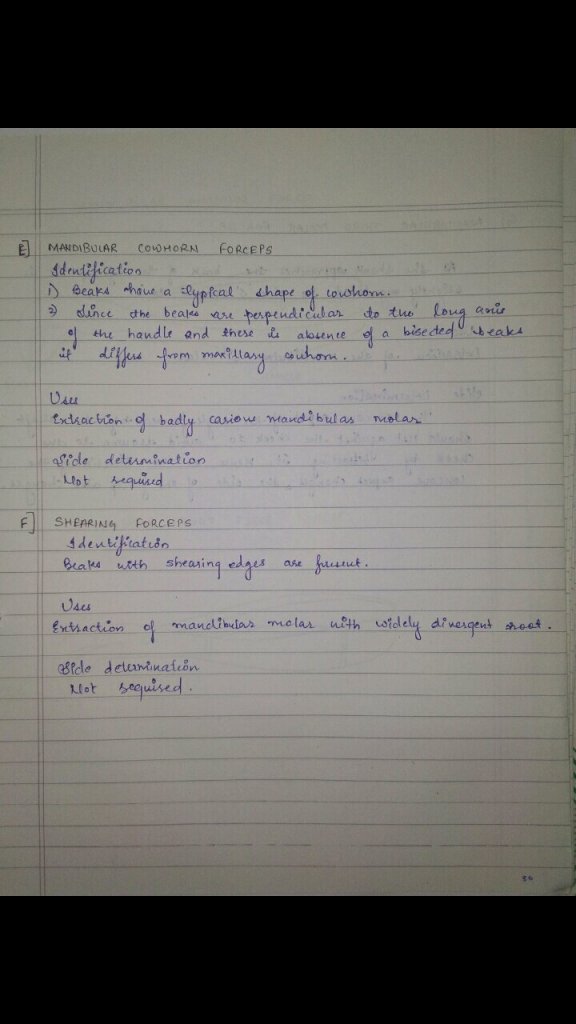 E] MANDIBULAR COWHORN FORCEPS
Identification
1) Beaks have a typical shape of cowhorn.
2) Since the beaks are perpendicular to the long axis
of the handle and there is absence of a bisected beaks
it differs from maxillary cowhorn.
Uses
Extraction of badly carious mandibular molar
Side determination
Not required
F] SHEARING FORCEPS
Identification
Beaks with shearing edges are present.
Uses
Extraction of mandibular molar with widely divergent root.
Side determination
Not required.